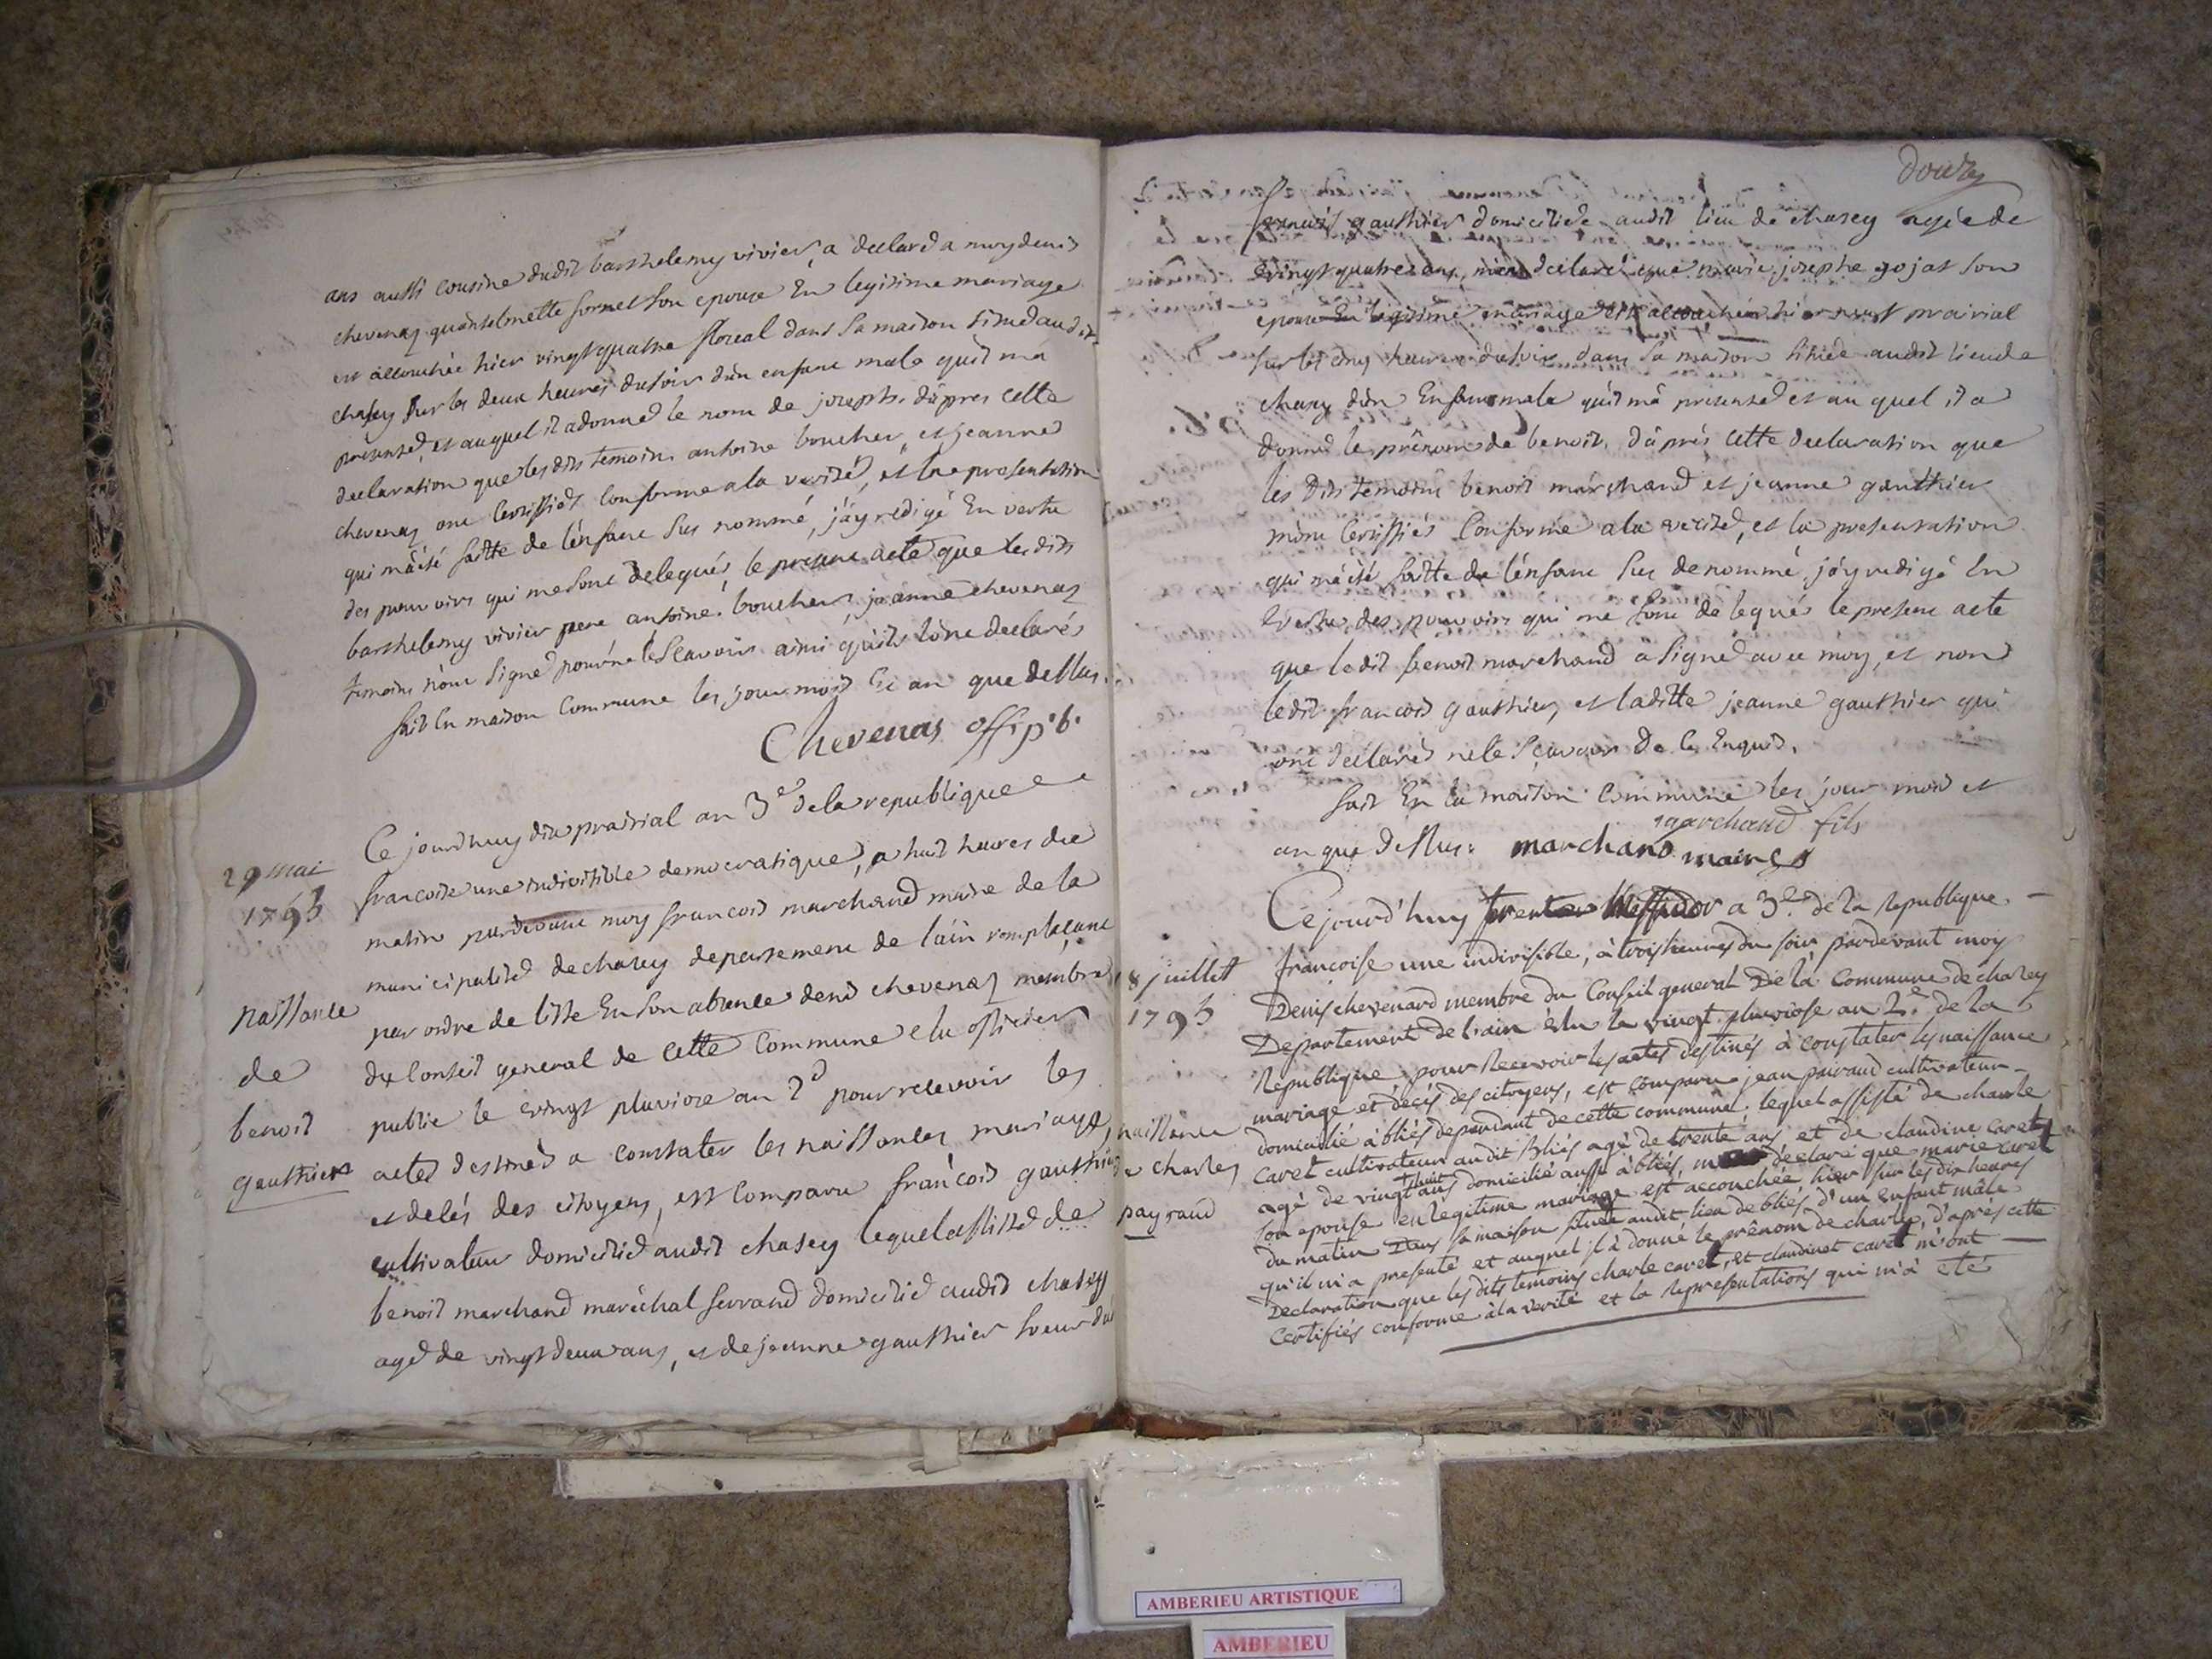 ans aussi cousine dudit barthelemy vivier, a declaré a moy denis
chevenaz quantelmette fornet son epouse En legitime mariage
est accouchée hier vingt quatre floreal dans sa maison située audit
chasey sur les deux heures du soir d'un enfant male quil ma
presenté, et auquel il a donné le nom de joseph. d'apres cette
declaration que les dits temoins antoine boucher, et jeanne
chevenaz ont certiffiés conforme a la verité, et la presentation
qui m'a été faitte de l'enfant sus nommé, j'ay redigé En vertu
des pouvoirs qui me sont delegués, le present acte que les dits
barthelemy vivier pere antoine boucher, jeanne chevenaz
temoins n'ont signé pour ne le scavoir ainsi qu'ils l'ont declarés
fait En maison commune les jour mois Et an que dessus.
Chevenas off. p.b.
29 mai
1795
naissance
de
benoit
gauthier
Ce jourdhuy dix prairial an 3e de la republique
francoise une indivisible democratique, a huit heures du
matin pardevant moy francois marchand maire de la
municipalité de chasey departement de l'ain remplaçant
par ordre de liste En son absence denis chevenaz membre
du Conseil general de cette Commune elu officier
public le vingt pluviose an 2d pour recevoir les
actes destinés a constater les naissances mariages
et decés des citoyens, est comparu francois gauthier
cultivateur domicilié audit chasey lequel assisté de
benoit marchand maréchal ferrand domicilié audit chasey
agé de vingt deux ans, et de jeanne gauthier soeur du
douze
francois gauthier domiciliée audit lieu de chasey agée de
vingt quatre ans, m'a declaré que marie josephe gojat son
epouse En legitime mariage est accouchée hier neuf prairial
sur les cinq heures du soir dans sa maison située audit lieu de
chasey d'un Enfant male qu'il m'a presenté et au quel il a
donné le prénom de benoit, d'aprés cette declaration que
les dits temoins benoit marchand et jeanne gauthier
m'ont certiffiés conforme a la verité, et la presentation
qui m'a été faitte de l'enfant sus denommé, j'ay redigé En
vertu des pouvoirs qui me sont delegués le present acte
que ledit benoit marchand a signé avec moy, et non
ledit francois gauthier, et laditte jeanne gauthier qui
ont declarés ne le scavoir de ce Enquis.
fait En la maison commune les jour mois et
an que dessus. marchand maire marchand fils
18 juillett
1795
naissance
de charles
payraud
Cejourd'huy trente Messidor a 3e. de la Republique
françoise une indivisible, à trois heures du soir pardevant moy
Denis chevenard membre du Conseil general De la Commune de chasey
Departement de l'ain élu le vingt pluviose an 2e. de la
Republique pour Recevoir les actes destinés à constater les naissance
mariage et décès des citoyens, est comparu jean pairaud cultivateur
domicilié à bliés dependant de cette commune, lequel assisté de charle
caret cultivateur audit Bliés agé de trente ans, et de claudine caret
agé de vingt huit ans domicilié aussi à bliés, m'a declaré que marie caret
son epouse en legitime mariage est accouchée hier sur les dix heures
du matin Dans sa maison située audit lieu de bliés d'un enfant mâle
qu'il m'a presenté et auquel il à donné le prênom de charle, d'après cette
Declaration que les dits temoins charle caret, et claudinet caret m'ont
Certifiés conforme à la verité et la Representations qui m'a eté
AMBERIEU ARTISTIQUE
AMBERIEU